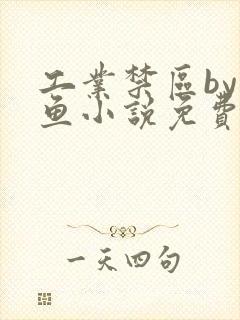 工業禁區by
鱼小說免費
一天四句